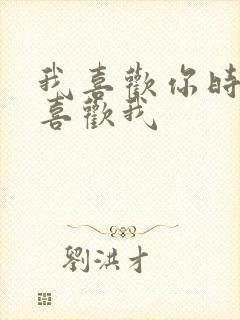 我喜歡你時
喜歡我
劉洪才